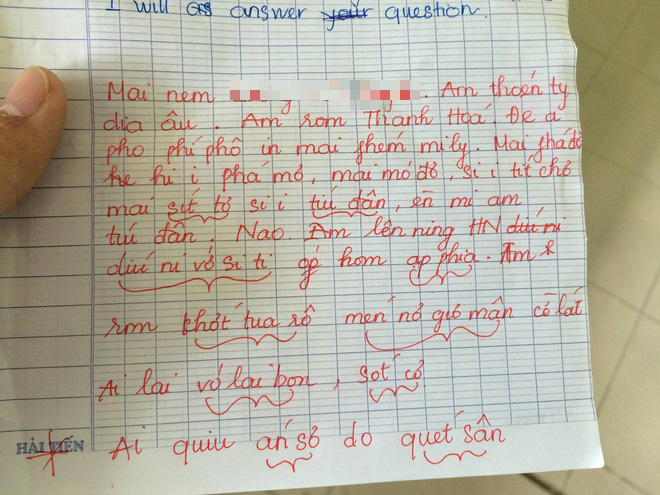 I will answer question.
Mai nem . Am thoen ty
dia âu. Am rom Thanh Hoá. Đe a
pho phí phô in mai phem mily. Mai phá đờ
hi i phá mở, mai mó đờ, si i tít chờ
mai sít tơ si i tiú đân, èn mi am
tuí đân. Nao. Am lên ning HN diú ni
diú ni vớ si ti óp hom ap phia. Am
rom khót tua rô men nờ giơ mân cô lất
Ai lai vó lau bon, sot cờ
HẢI TIẾN
Ai quiu an sờ do quet sân